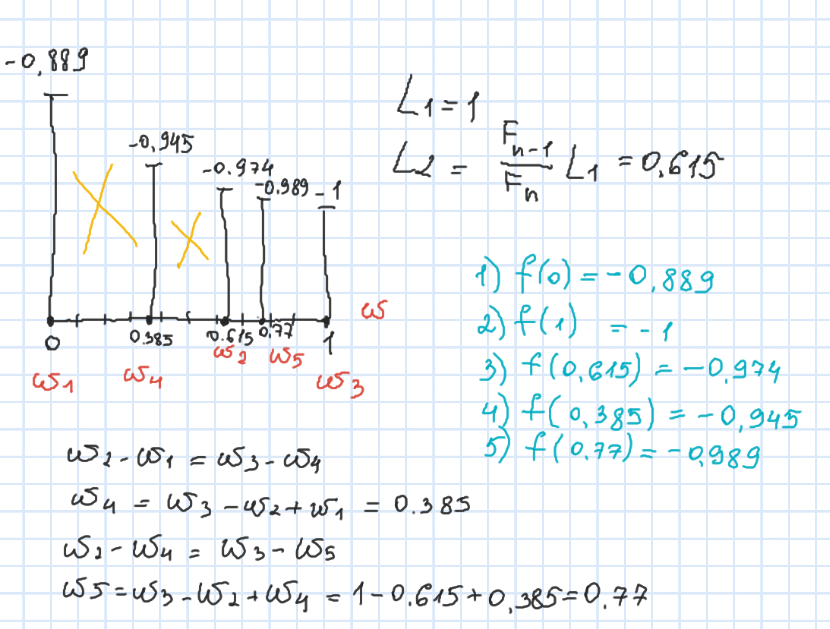 -0,889
-0,945
-0.974
-0.989
-1
0
0.385
0.615
0,77
1
ω
ω1
ω4
ω2
ω5
ω3
L1=1
L2 = F n-1 / F n L1 = 0.615
1) f(0) = -0,889
2) f(1) = -1
3) f(0,615) = -0,974
4) f(0,385) = -0,945
5) f(0.77) = -0,989
ω2 - ω1 = ω3 - ω4
ω4 = ω3 - ω2 + ω1 = 0.385
ω2 - ω4 = ω3 - ω5
ω5 = ω3 - ω2 + ω4 = 1 - 0.615 + 0,385 = 0.77